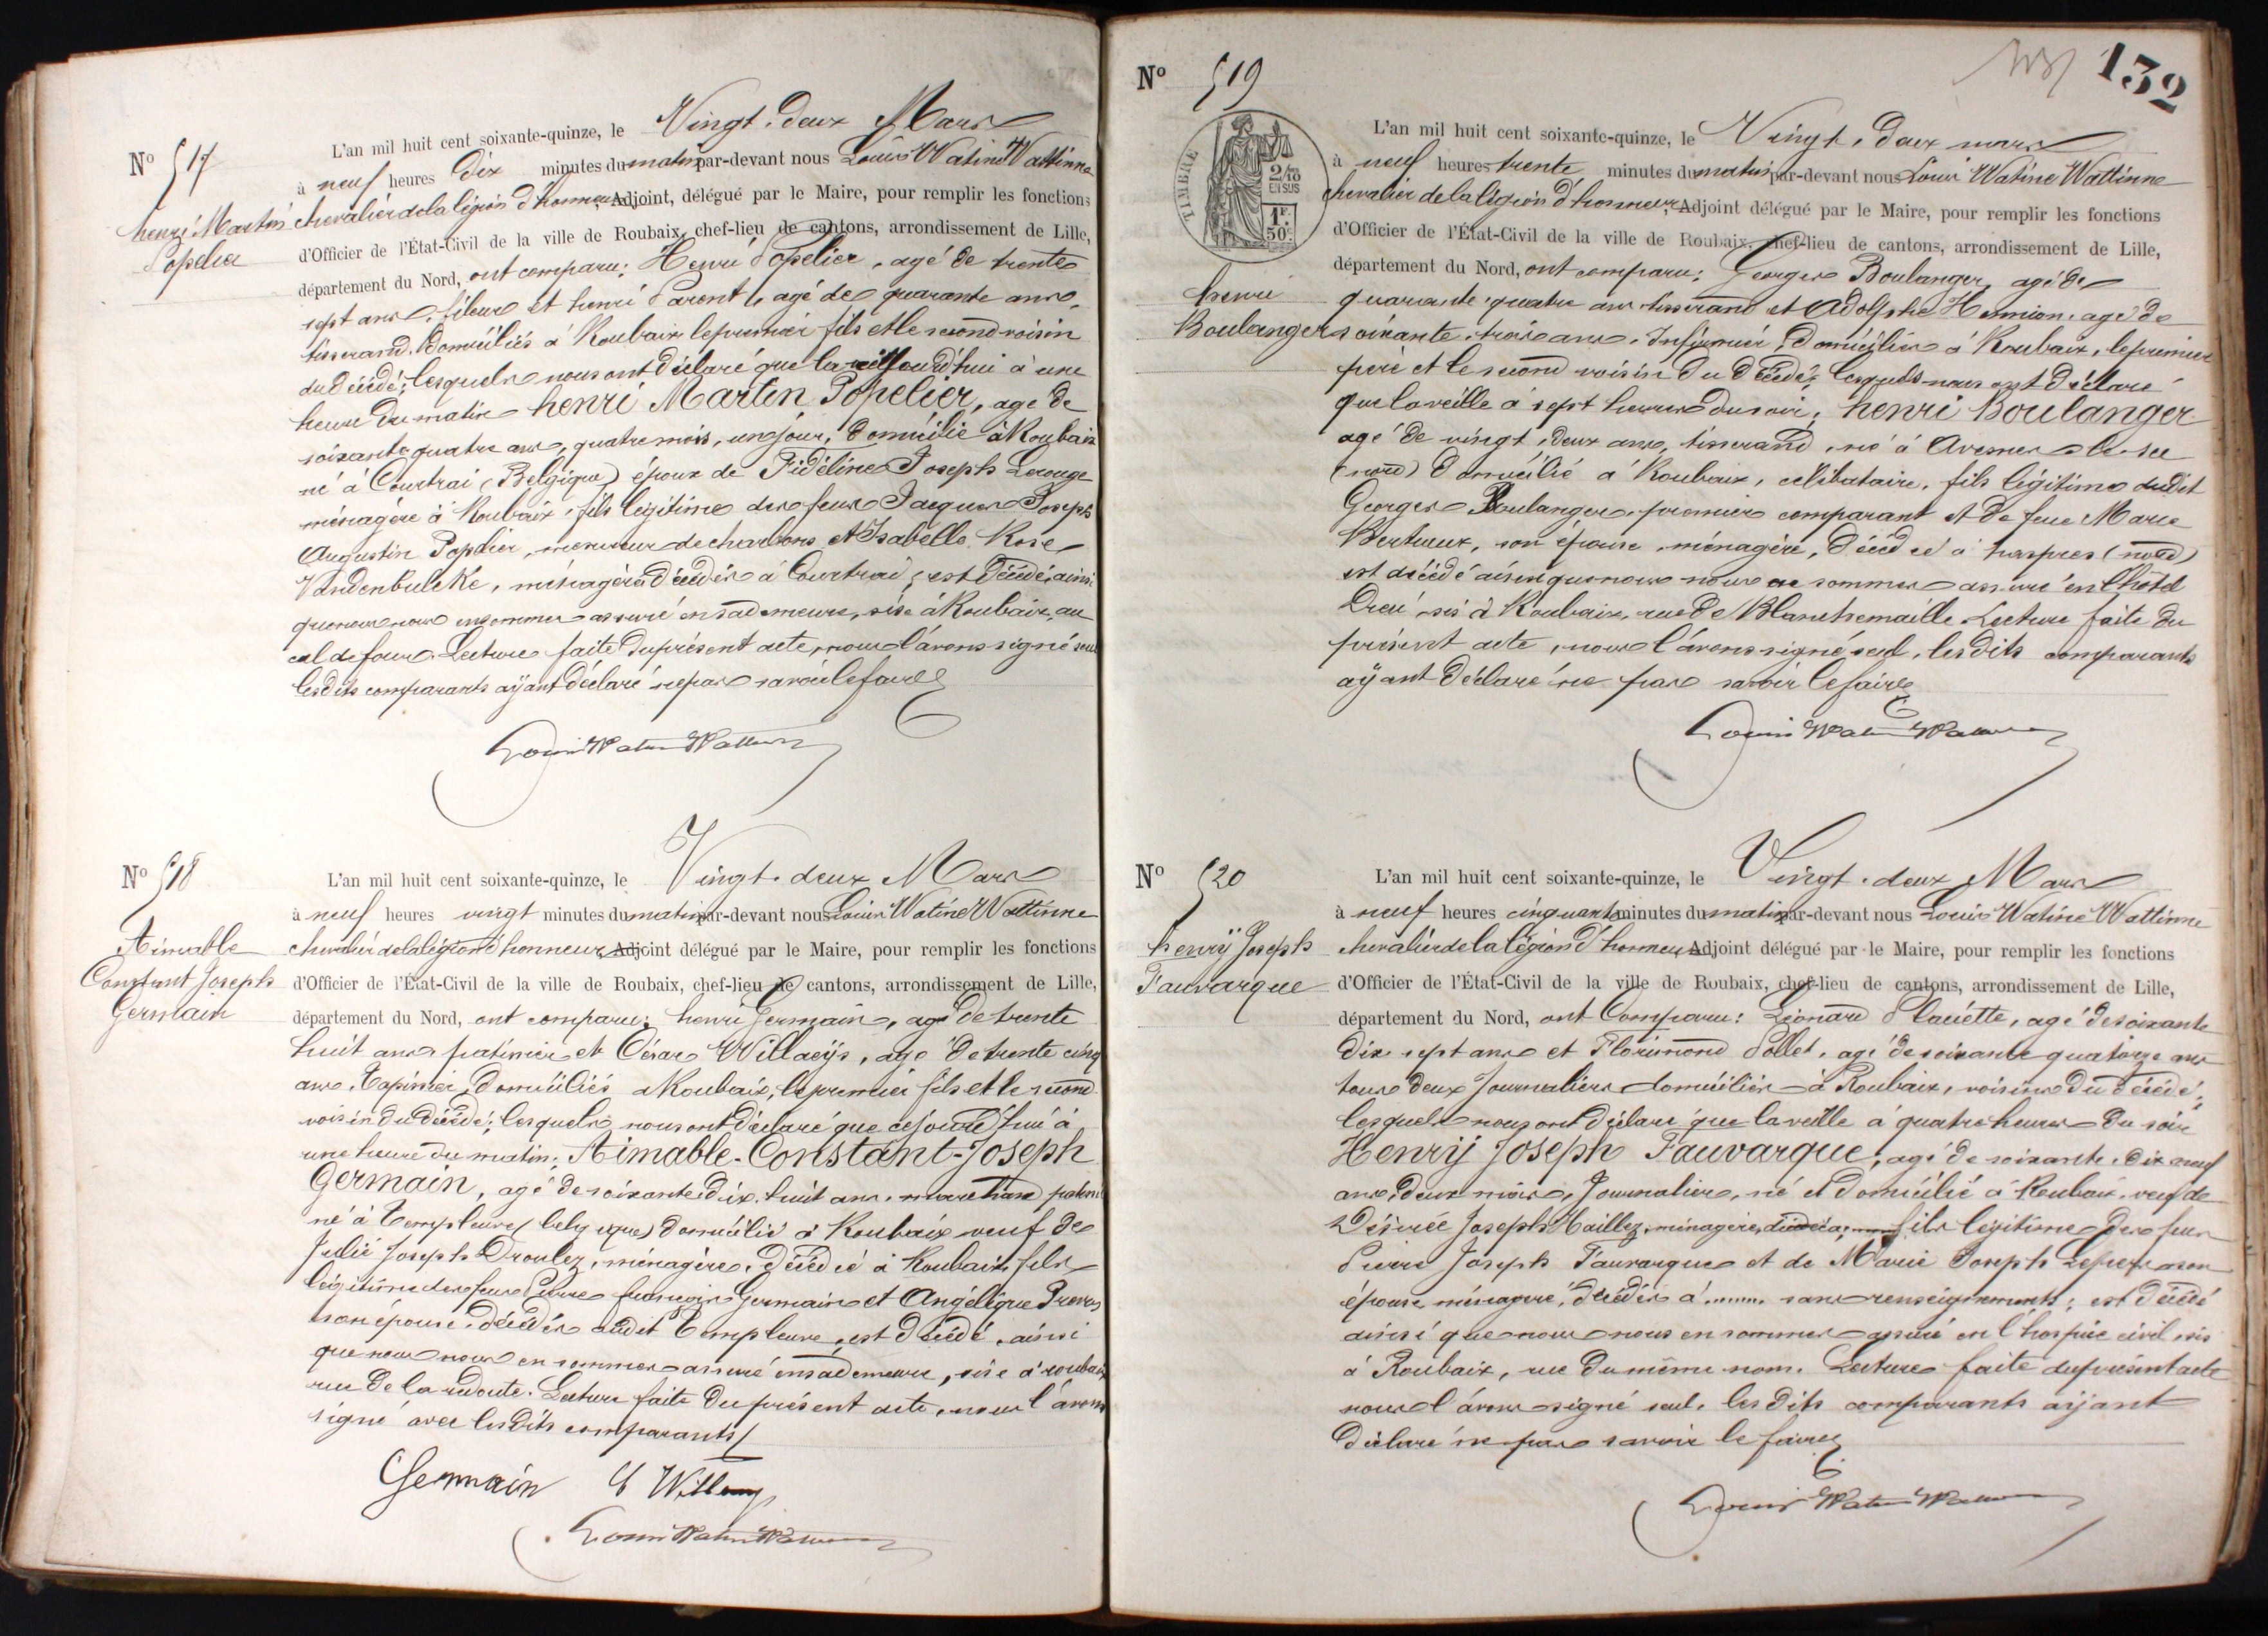 Nº 517
henri Martin
Popelier
L'an mil huit cent soixante-quinze, le Vingt-deux Mars
à neuf heures dix minutes du matin par-devant nous Louis Watine Wattinne
chevalier de la légion d'honneur, Adjoint, délégué par le Maire, pour remplir les fonctions
d'Officier de l'État-Civil de la ville de Roubaix, chef-lieu de cantons, arrondissement de Lille,
département du Nord, ont comparu: Henri Popelier, agé de trente
sept ans, fileur et henri Parent, agé de quarante ans,
tisserand, domiciliés à Roubaix le premier fils et le second voisin
du décédé; lesquels nous ont déclaré que aujourd'hui à une
heure du matin henri Martin Popelier, agé de
soixante quatre ans, quatre mois, un jour, domicilié à Roubaix
né à Courtrai (Belgique) époux de Fidéline Joseph Lerouge
ménagère à Roubaix, fils légitime des feus Jacques Joseph
Augustin Popelier, mesureur de charbons et Isabelle Rose
Vandenbulcke, ménagère décédés à Courtrai; est décédé, ainsi
que nous nous en sommes assuré en sa demeure, sise à Roubaix, au
cul de four. Lecture faite du présent acte, nous l'avons signé seul
les dits comparants ayant déclaré ne pas savoir le faire
Louis Watine Wattinne
Nº 518
Aimable
Constant Joseph
Germain
L'an mil huit cent soixante-quinze, le Vingt-deux Mars
à neuf heures vingt minutes du matin par-devant nous Louis Watine Wattinne
chevalier de la légion d'honneur, Adjoint délégué par le Maire, pour remplir les fonctions
d'Officier de l'État-Civil de la ville de Roubaix, chef-lieu de cantons, arrondissement de Lille,
département du Nord, ont comparu: henri Germain, agé de trente
huit ans patinier et César Willaeijs, agé de trente cinq
ans, tapissier, domiciliés à Roubaix, le premier fils et le second
voisin du décédé; lesquels nous ont déclaré que ce jourd'hui à
une heure du matin; Aimable-Constant-Joseph
Germain, agé de soixante dix-huit ans,
né à Templeuve (belgique) domicilié à Roubaix veuf de
Julie Joseph Droulez, ménagère, décédée à Roubaix, fils
légitime des feus Pierre françois Germain et Angélique
son épouse, décédés audit Templeuve, est décédé, ainsi
que nous nous en sommes assuré en sa demeure, sise à roubaix
rue de la redoute. Lecture faite du présent acte, nous l'avons
signé avec les dits comparants
Germain C Willaeys
Louis Watine Wattinne
132
Nº 519
TIMBRE
2/10
EN SUS
1F
50c
henri
Boulanger
L'an mil huit cent soixante-quinze, le Vingt-deux mars
à neuf heures trente minutes du matin par-devant nous Louis Watine Wattinne
chevalier de la légion d'honneur, Adjoint délégué par le Maire, pour remplir les fonctions
d'Officier de l'État-Civil de la ville de Roubaix, chef-lieu de cantons, arrondissement de Lille,
département du Nord, ont comparu: Georges Boulanger, agé de
quarante-quatre ans tisserand et Adolphe Hennion, agé de
soixante-trois ans, Infirmier, domiciliés à Roubaix, le premier
père et le second voisin du décédé; lesquels nous ont déclaré
que la veille à sept heures du soir; henri Boulanger
agé de vingt-deux ans, tisserand, né à Avesnes-le-sec
(nord) domicilié à Roubaix, célibataire, fils légitime dudit
Georges Boulanger, premier comparant et de feue Marie
son épouse, ménagère, décédée à haspres (nord)
est décédé ainsi que nous nous en sommes assuré en l'hôtel
Dieu, sis à Roubaix, rue de Blanchemaille. Lecture faite du
présent acte, nous l'avons signé seul, les dits comparants
ayant déclaré ne pas savoir le faire
Louis Watine Wattinne
Nº 520
henrÿ Joseph
Fauvarque
L'an mil huit cent soixante-quinze, le Vingt-deux Mars
à neuf heures cinquante minutes du matin par-devant nous Louis Watine Wattinne
chevalier de la légion d'honneur, Adjoint délégué par le Maire, pour remplir les fonctions
d'Officier de l'État-Civil de la ville de Roubaix, chef-lieu de cantons, arrondissement de Lille,
département du Nord, ont Comparu: Léonard agé de soixante
dix-sept ans et Florimond Pollet, agé de soixante quatorze ans
tous deux Journaliers domiciliés à Roubaix, voisins du décédé;
lesquels nous ont déclaré que la veille à quatre heures du soir
Henrÿ Joseph Fauvarque, agé de soixante-dix neuf
ans, deux mois, Journalier, né et domicilié à Roubaix, veuf de
Désirée Joseph ménagère, décédée fils légitime des feus
Pierre Joseph Fauvarque et de Marie Joseph son
épouse, ménagère, décédés à ....... sans renseignements; est décédé
ainsi que nous nous en sommes assuré en l'hospice civil sis
à Roubaix, rue du même nom. Lecture faite du présent acte
nous l'avons signé seul, les dits comparants ayant
déclaré ne pas savoir le faire
Louis Watine Wattinne